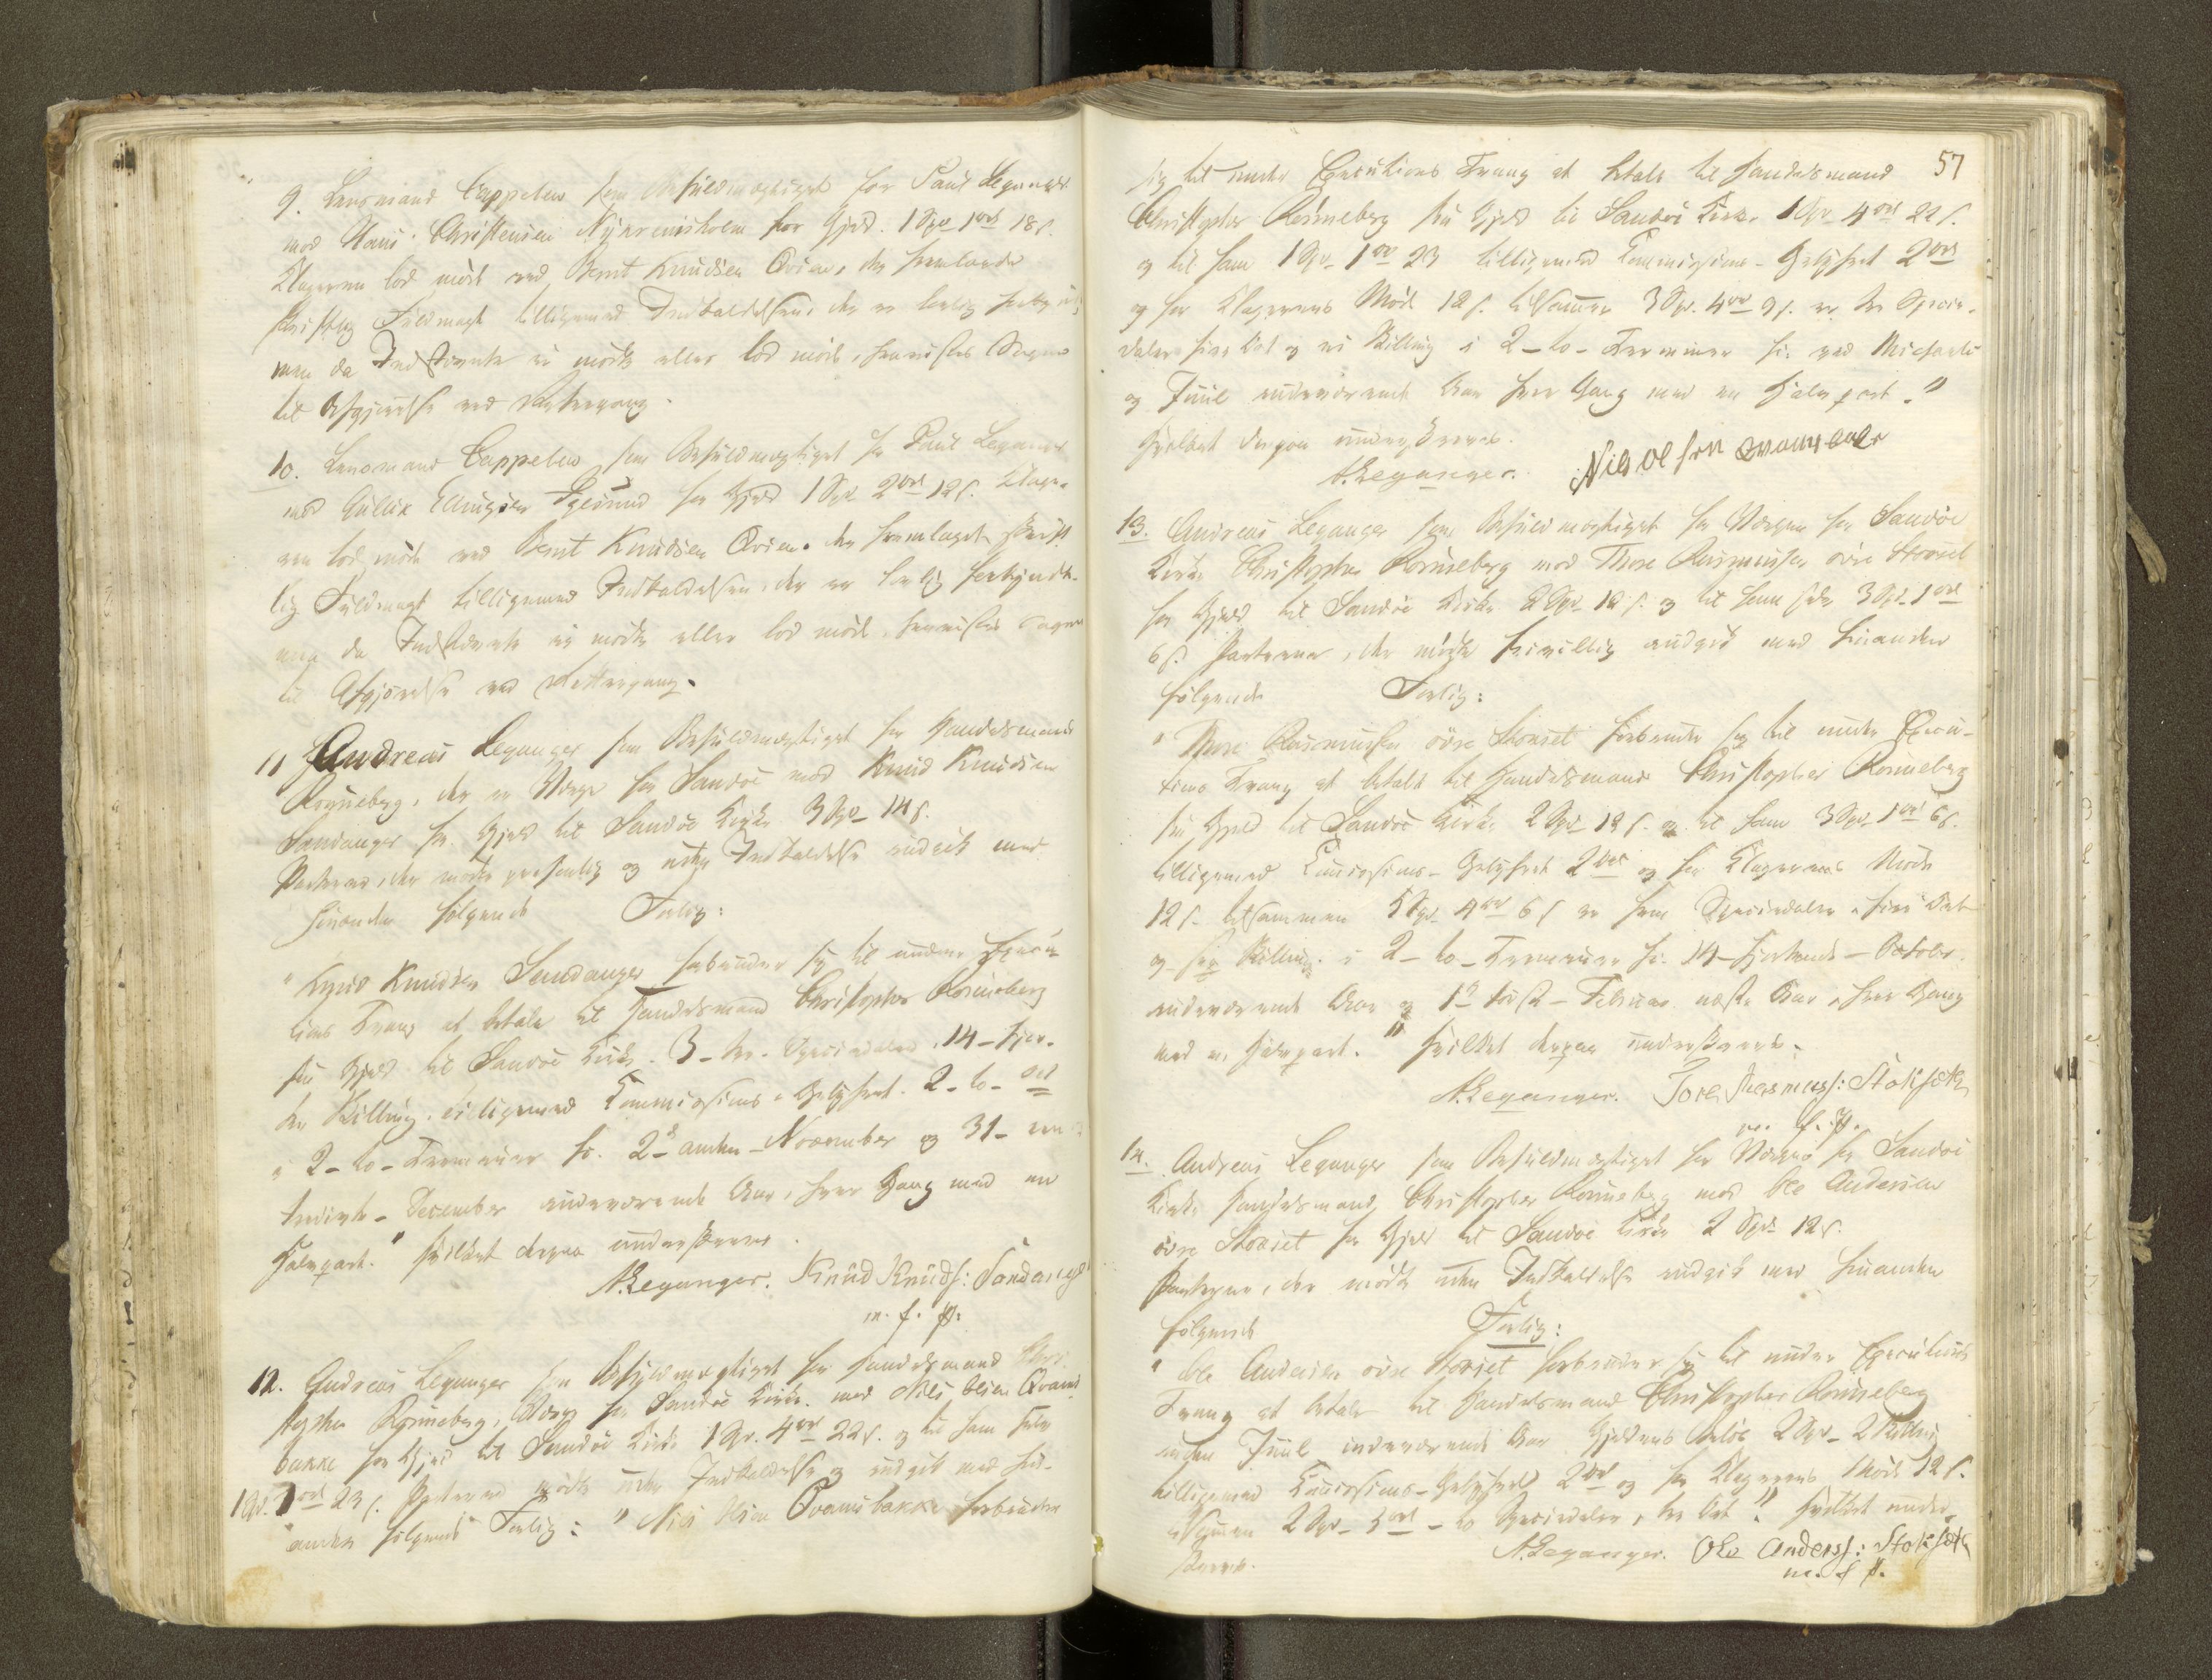 9. Lensmand Cappelen som Befuldmægtiget for Paul Leganger
mod Hans Christensen Nykreimsholm for Gjeld 1 Spd 1 ort 18 s.
Klageren lod møde ved Bernt Knudsen Qvien, der fremlagde
skriftlig Fuldmagt tilligemed Indkaldelsen, der er lovlig
men da Indstevnte ei mødte eller lod møde, henvistes Sagen
til Afgjørelse ved Rettergang.
10. Lensmand Cappelen som Befuldmægtiget for Paul Leganger
mod Gullik Ellingsen for Gjeld 1 Spd 2 ort 12 s. Klage-
ren lod møde ved Bernt Knudsen Qvien, der fremlagde skrift-
lig Fuldmagt tilligemed Indkaldelsen, der er lovlig forkyndt,
men da Indstevnte ei mødte eller lod møde, henvistes Sagen
til Afgjørelse ved Rettergang.
11 Andreas Leganger som Befuldmægtiget for Handelsmand
Rønneberg, der er Værge for Sandøe mod Knud Knudsen
Sandanger for Gjeld til Sandøe Kirke 3 Spd 14 s.
Parterne, der mødte personlig og uden Indkaldelse indgik med
hinanden følgende Forlig:
"Knud Knudsen Sandanger forbinder sig til under Execu-
tions Tvang at betale til Handelsmand Christopher Rønneberg
sin Gjeld til Sandøe Kirke 3 - tre - Speciedaler, 14 - fjor-
ten Skilling, tilligemed Commissions-Gebyhret 2 - to - ort
i 2 - to - Terminer s: 2den anden - November og 31 - en
tredivte - December indeværende Aar, hver Gang med en
Halvpart." hvilket de paa underskreve.
A. Leganger. Knud Knuds: Sandanger
m. f. P.
12. Andreas Leganger som Befuldmægtiget for Handelsmand Chri-
stopher Rønneberg, Værge for Sandøe Kirke mod Nils Olsen Qvams-
bakke for Gjeld til Sandøe Kirke 1 Spd. 4 ort 22 s. og til ham selv
1 Spd. 1 ort 23 s. Parterne mødte uden Indkaldelse og indgik med hin-
anden følgende Forlig: "Nils Olsen Qvamsbakke forbinder
57
sig til under Executions Tvang at betale til Handelsmand
Christopher Rønneberg sin Gjeld til Sandøe Kirke 1 Spd 4 ort 22 s.
og til ham 1 Spd 1 ort 23 tilligemed Commissions-Gebyhret 2 ort
og for Klagerens Møde 12 s. tilsammen 3 Spd. 4 ort 9 s. er tre Specie-
daler fire Ort og ni Skilling i 2 - to - Terminer s: ved Michaeli
og Juul indeværende Aar hver Gang med en Halvpart."
hvilket de paa underskreve.
A. Leganger. Nils Olsen Qvamsbake
13. Andreas Leganger som Befuldmægtiget for Værgen for Sandøe
Kirke Christopher Rønneberg mod Thore Rasmussen øvre Stoxset
for Gjeld til Sandøe Kirke 2 Spd 12 s. og til ham selv 3 Spd 1 ort
6 s. Parterne, der mødte frivillig indgik med hinanden
følgende Forlig:
"Thore Rasmussen øvre Stoxset forbinder sig til under Execu-
tions Tvang at betale til Handelsmand Christopher Rønneberg
sin Gjeld til Sandøe Kirke 2 Spd 12 s. og til ham 3 Spd 1 ort 6 s.
tilligemed Commissions-Gebyhret 2 ort og for Klagerens Møde
12 s. tilsammen 5 Spd 4 ort 6 s er fem Speciedaler, fire Ort
og sex Skilling i 2 - to - Terminer s: 14 - fjortende - October
indeværende Aar og 1ste første - Februar næste Aar, hver Gang
med en Halvpart." hvilket de paa underskreve.
A. Leganger. Tore Rasmuss: Stoksæth
m. f. P.
14. Andreas Leganger som Befuldmægtiget for Værge for Sandøe
Kirke Handelsmand Christopher Rønneberg mod Ole Andersen
øvre Stoxset for Gjeld til Sandøe Kirke 2 Spd 12 s.
Parterne, der mødte uden Indkaldelse indgik med hinanden
følgende Forlig:
"Ole Andersen øvre Stoxset forbinder sig til under Executions
Tvang at betale til Handelsmand Christopher Rønneberg
inden Juul indeværende Aar Gjeldens Beløb 2 Spd 2 Skilling
tilligemed Commissions-Gebyhret 2 ort og for Klagerens Møde 12 s.
tilsammen 2 Spd 3 ort - to Speciedaler, tre Ort." hvilket under-
skreve. A. Leganger. Ole Anderss: Stoksæth
m. f. P.